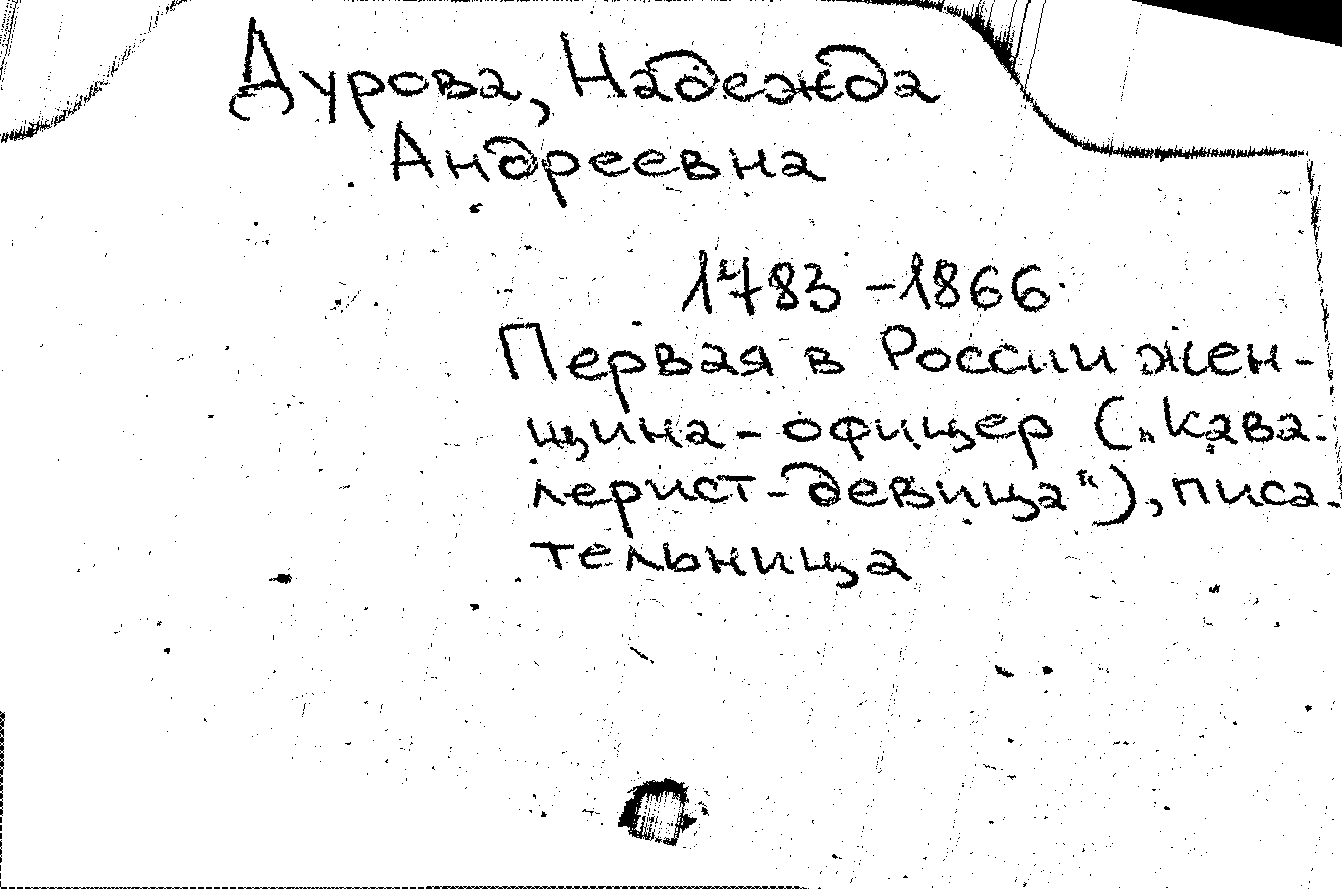 Дурова, Надежда
Андреевна
1783 - 1866.
Первая в России жен-
щина - офицер („кава-
лерист-девица“), писа-
тельница